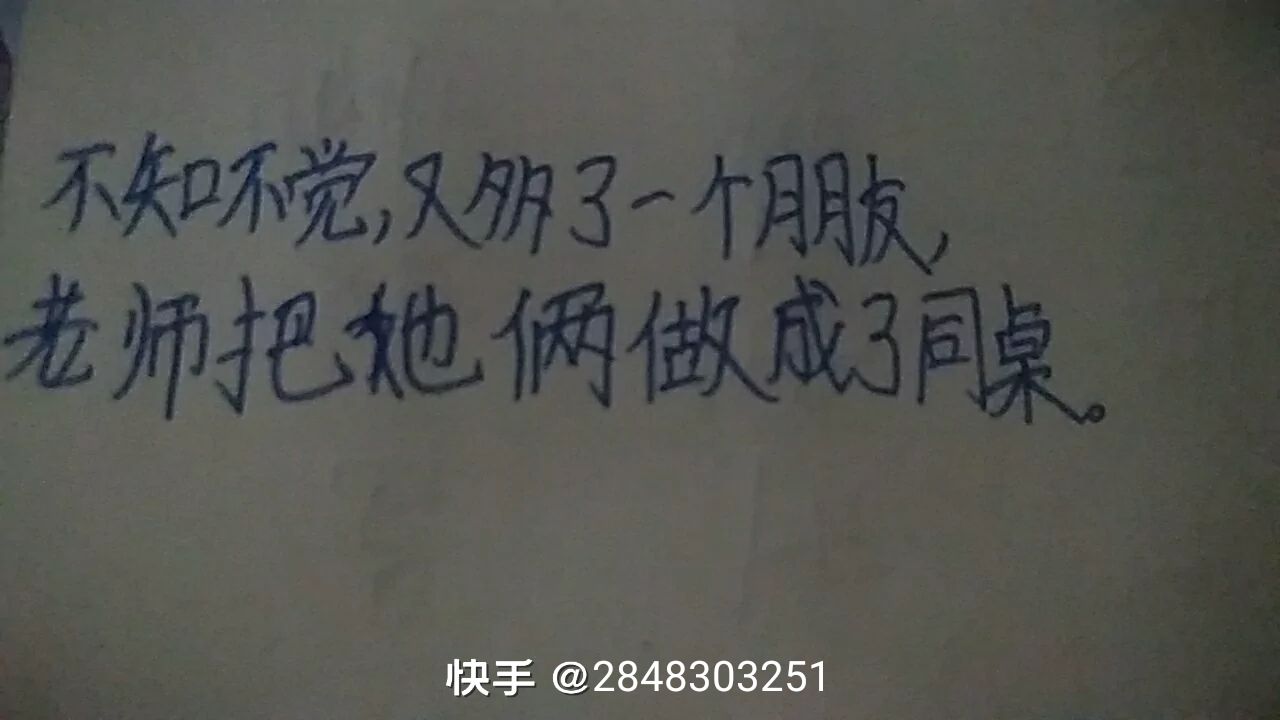 不知不觉,又多了一个朋友,
老师把她俩做成了同桌。
快手 @2848303251